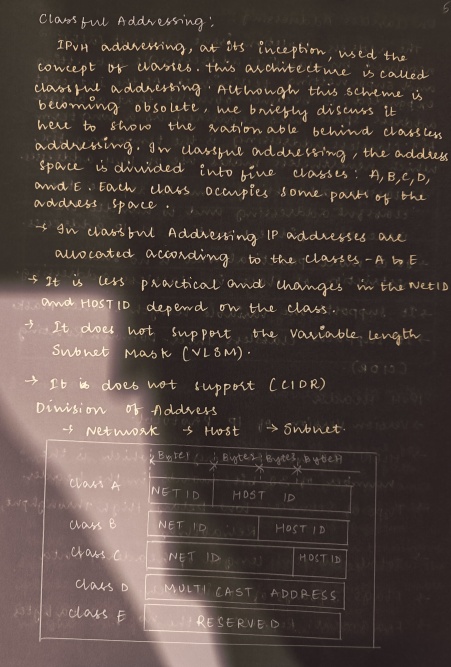 5
Classful Addressing:
IPv4 addressing, at its inception, used the
concept of classes. this architecture is called
classful addressing. Although this scheme is
becoming obsolete, we briefly discuss it
here to show the rationable behind classless
addressing. In classful addressing, the address
space is divided into five classes: A, B, C, D,
and E. Each class occupies some parts of the
address space.
→ In classful Addressing IP addresses are
allocated according to the classes - A to E
→ It is less practical and changes in the NetID
and HOST ID depend on the class.
→ It does not support the Variable Length
Subnet Mask (VLSM).
→ It is does not support (CIDR)
Division of Address
→ Network → Host → Subnet.
Byte1 Byte2 Byte3 Byte4
Class A NET ID HOST ID
Class B NET ID HOST ID
Class C NET ID HOST ID
Class D MULTI CAST ADDRESS
Class E RESERVED